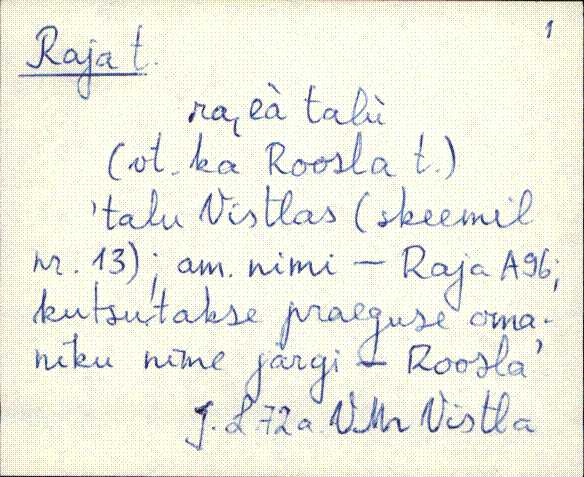 1
Raja t.
ra, eà talù
(vt. ka Roosla t.)
'talu Vistlas (skeemil
nr. 13); am. nimi — Raja A96;
kutsutakse praeguse oma-
niku nime järgi — Roosla'
J. L 72a. VMr Vistla